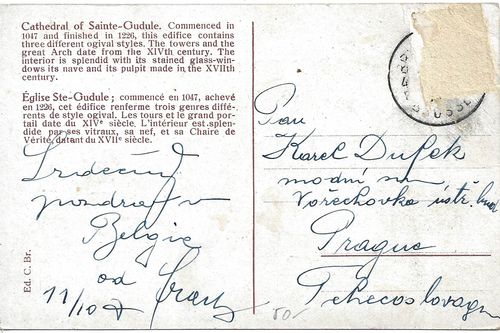 Cathedral of Sainte-Gudule. Commenced in
1047 and finished in 1226, this edifice contains
three different ogival styles. The towers and the
great Arch date from the XIVth century. The
interior is splendid with its stained glass-win-
dows its nave and its pulpit made in the XVIIth
century.
Église Ste-Gudule ; commencé en 1047, achevé
en 1226, cet édifice renferme trois genres diffé-
rents de style ogival. Les tours et le grand por-
tail date du XIVe siècle. L'intérieur est splen-
dide par ses vitraux, sa nef, et sa Chaire de
Vérité datant du XVIIe siècle.
Srdečný
pozdrav
Belgie
od
11/10
Ed. C. Br.
Pan
Karel Dufek
modní
Vořechovka ústř.
Prague
Tchecoslovaq
50.-